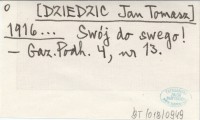 0 [DZIEDZIC Jan Tomasz]
1916... Swój do swego!
— Gaz. Podh. 4, nr 13.
BT/018/0949